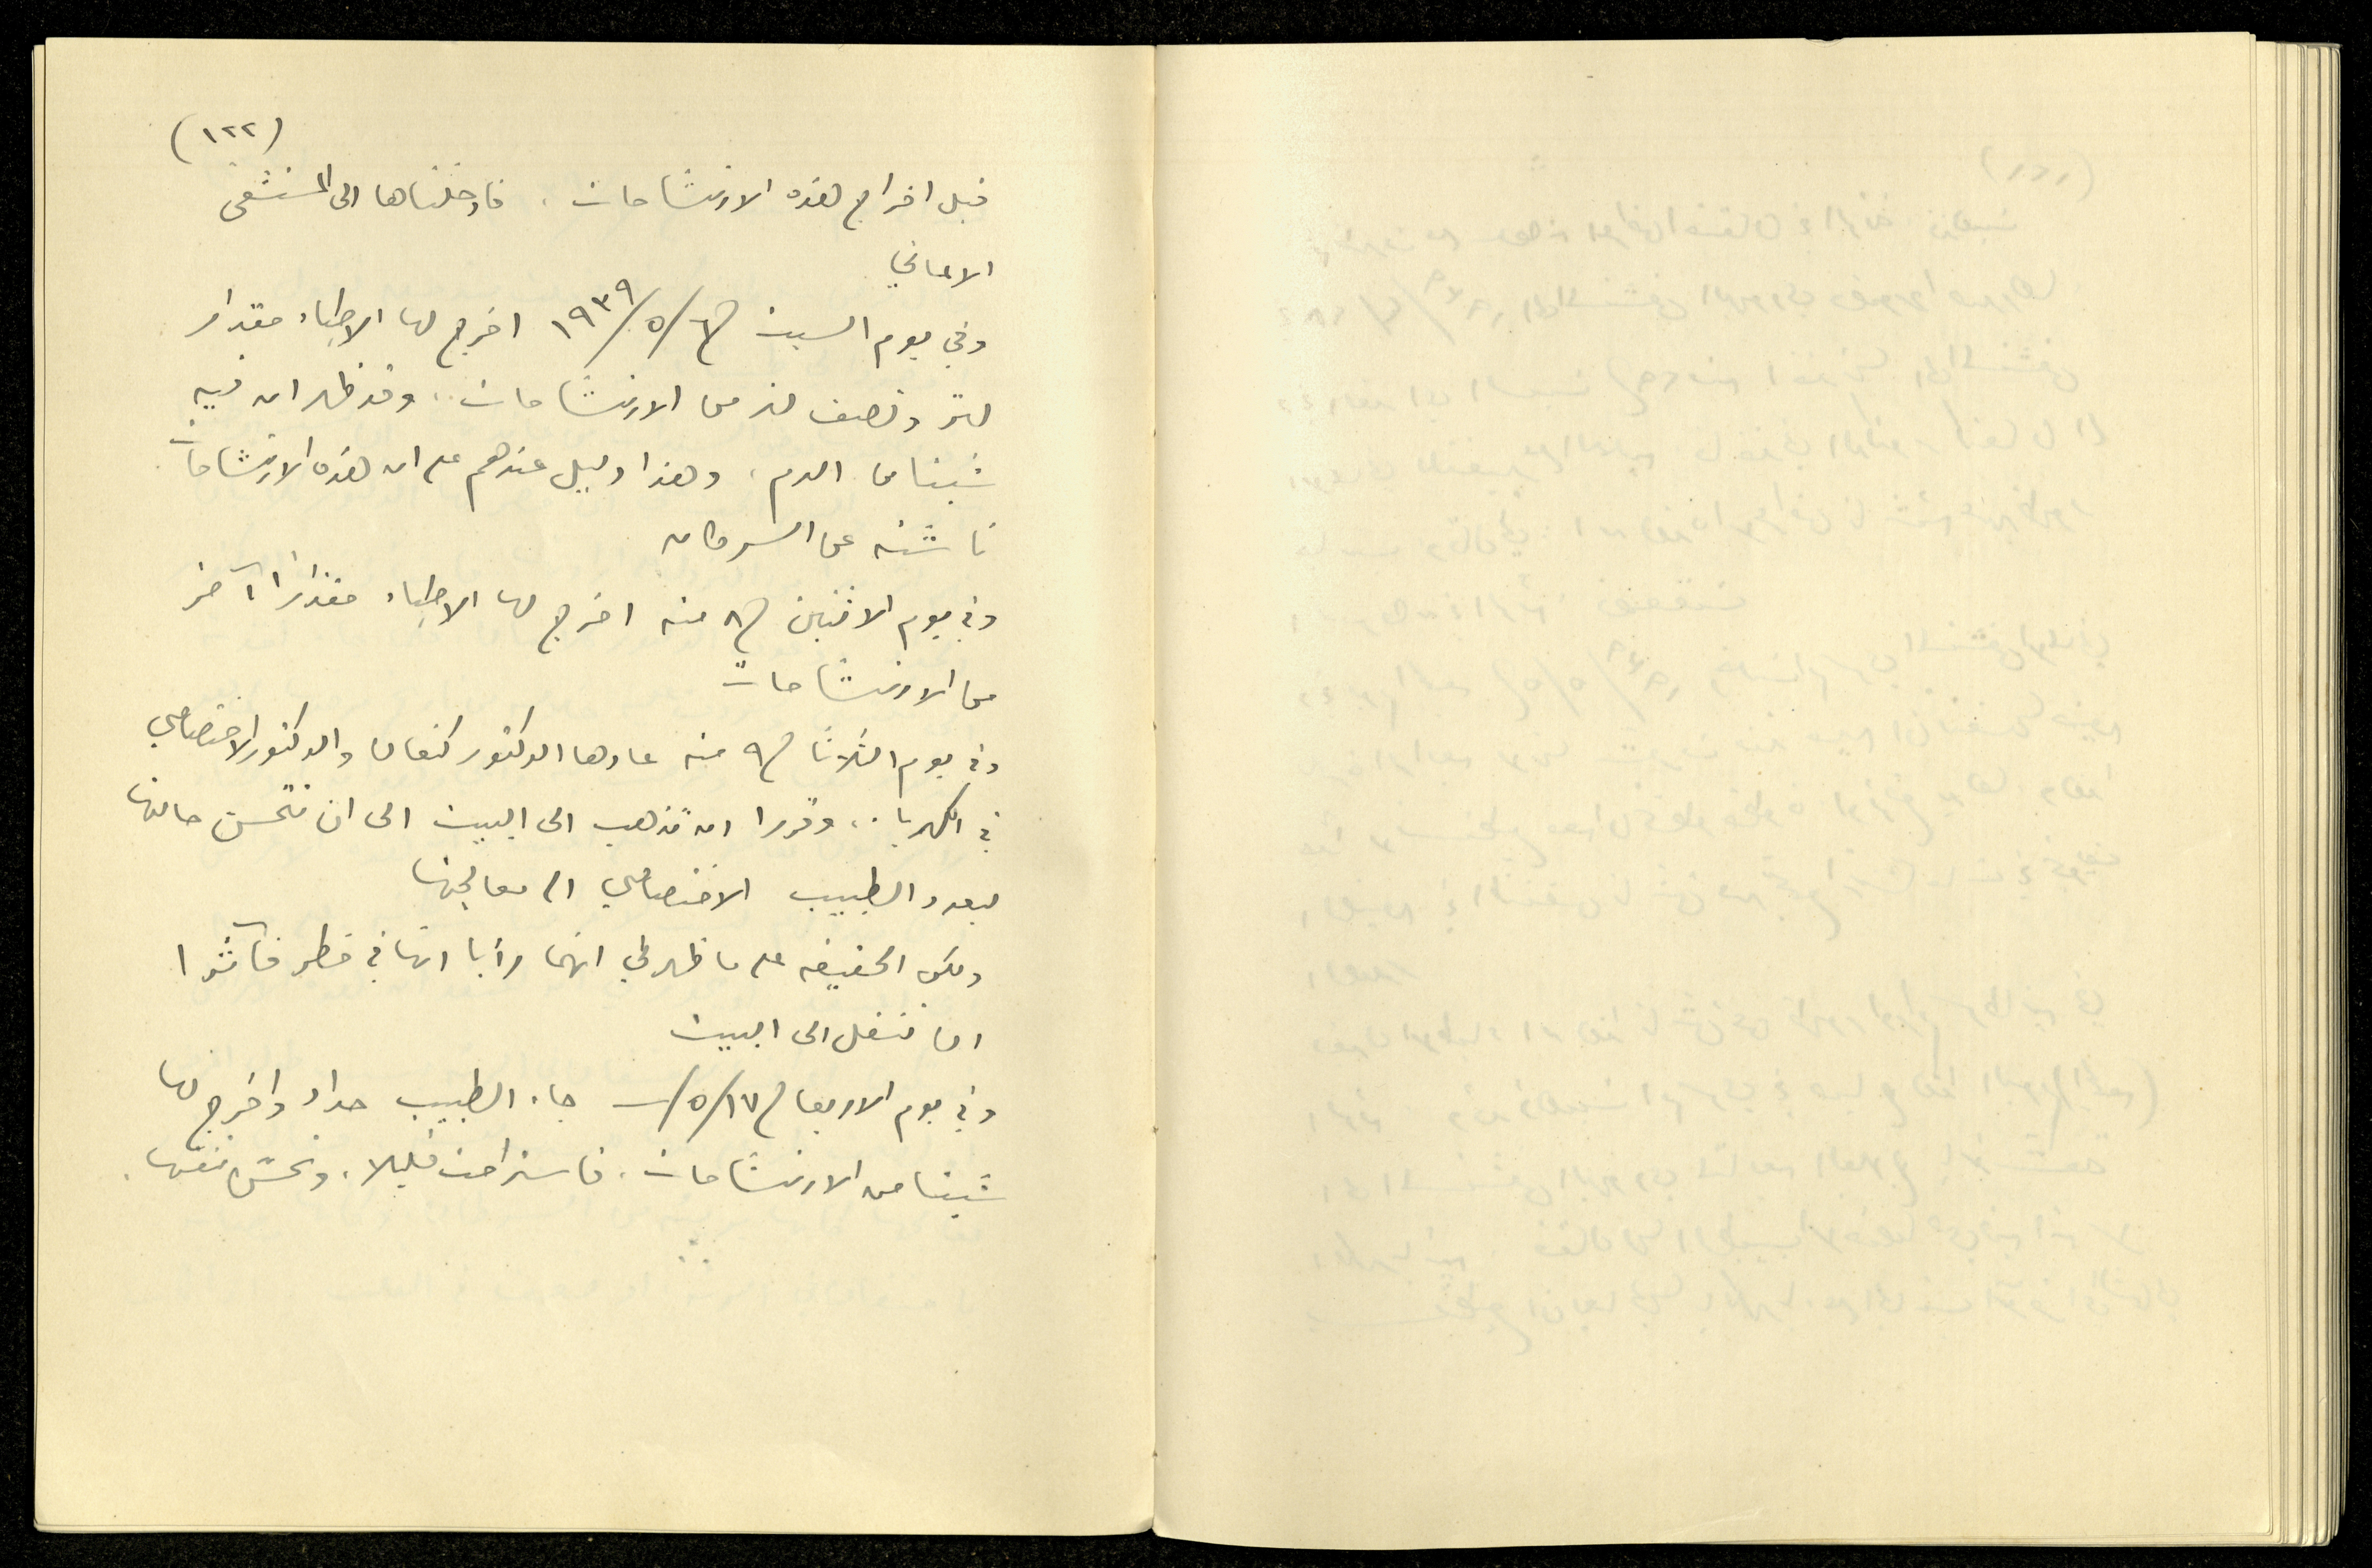 (١٢٢)
قبل اخراج هذه الارتشاحات، فادخلناها الى المستشفى
الالماني
وفي يوم السبت في ٦/٥/١٩٣٩ اخرج لها الاطباء مقدار
لتر ونصف لتر من الارتشاحات، وقد ظهر ان فيه
شيئا من الدم، وهذا دليل عندهم على ان هذه الارتشاحات
ناشئة عن السرطان
وفي يوم الاثنين في ٨ منه اخرج لها الاطباء مقدارا آخر
من الارتشاحات
وفي يوم الثلاثا في ٩ منه عادها الدكتور كنعان والدكتور الاختصاصي
في الكهرباء، وقررا ان تذهب الى البيت الى ان تتحسن حالتها
ليعود الطبيب الاختصاصي الى معالجتها
ولكن الحقيقة على ما ظهر لي انهما رأيا انها في خطر فآثروا
ان تنقل الى البيت
وفي يوم الاربعا في ١٧/٥/ــ جاء الطبيب حداد واخرج لها
شيئا من الارتشاحات، فاستراحت قليلا، وتحسّن